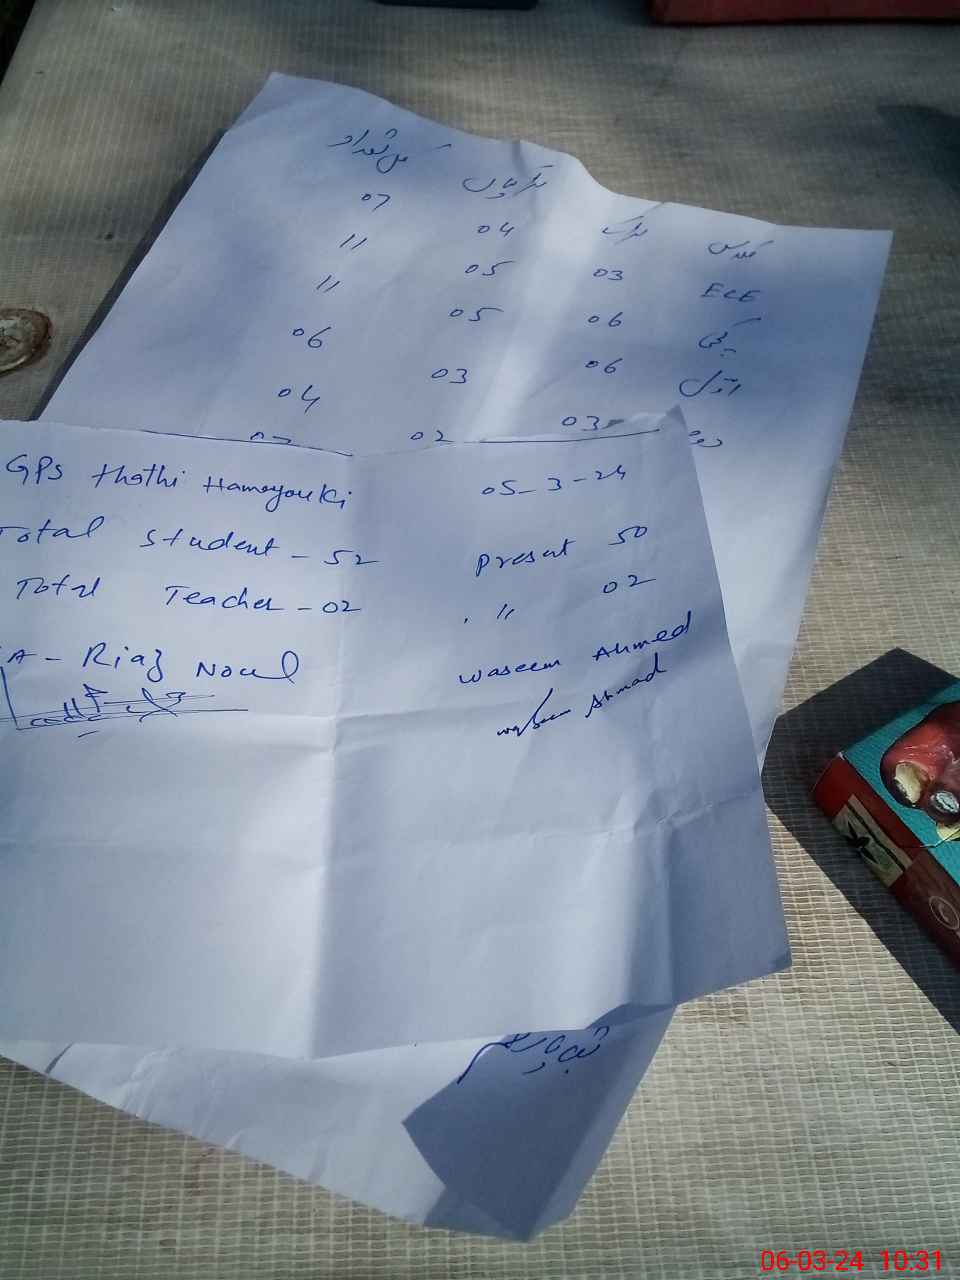 کلاس لڑکے لڑکیاں کل تعداد
ECE 03 04 07
کچی 06 05 11
اول 06 05 11
دوم 03 03 06
02 04
GPS Thathi Hamayou Ki 05-3-24
Total Student - 52 Present 50
Total Teacher - 02 . 11 02
Riaz Waseem Ahmed
Waseem Ahmad
06-03-24 10:31